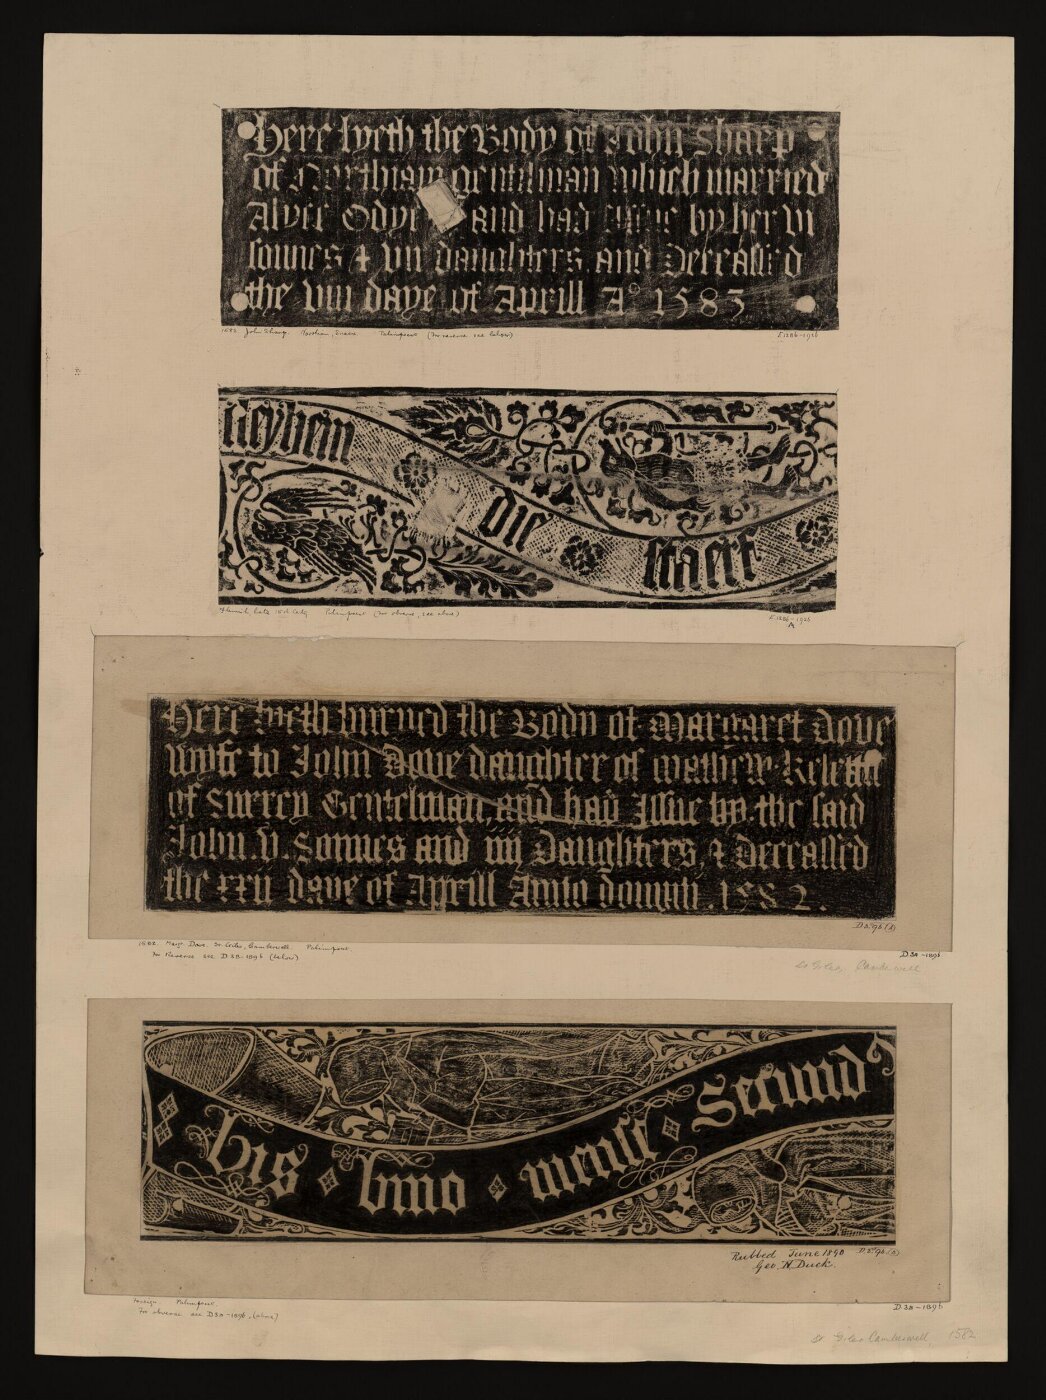 Here lyeth the Body of John Sharp
of Northiam gentilman which married
Alyce Odye and had issue by her vi
sonnes & vii daughters and Deceassed
the viii daye of Aprill A° 1583
1583 John Sharp. Northiam, Sussex Palimpsest (For reverse see below)
E.1286-1926
die
staerf
Flemish late 15th Centy Palimpsest (For obverse, see above)
E.1286-1926
A
Here lyeth burried the Body of Margaret Dove
wyfe to John Dove daughter of mathew
of Surrey Gentelman, and had Issue by the said
John. v. Sonnes and iiii Daughters & Deceassed
the xxii daye of Aprill Anno domini. 1582.
1582 Margt Dove. St. Giles, Camberwell. Palimpsest.
For Reverse see D.3B-1896 (below)
D.3A-1896
St Giles, Camberwell
his mensis Secund
Rubbed June 1890
Geo. H. Duck.
Foreign. Palimpsest.
For obverse see D3A-1896, (above)
D.3B-1896
St Giles Camberwell, 1582